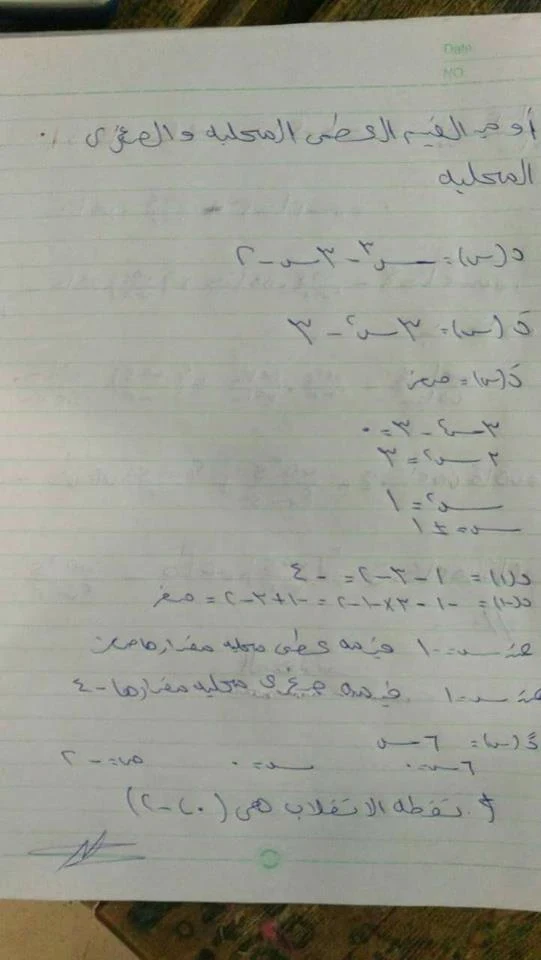 Date
NO
أوجد القيم العظمى المحلية والصغرى
المحلية
د(س) = س³ - ٣س - ٢
دَ(س) = ٣س² - ٣
دَ(س) = صفر
٣س² - ٣ = ٠
٣س² = ٣
س² = ١
س = ± ١
د(١) = ١ - ٣ - ٢ = - ٤
د(-١) = -١ - ٣ × -١ - ٢ = -١ + ٣ - ٢ = صفر
عند س = -١ قيمة عظمى محلية مقدارها صفر
عند س = ١ قيمة صغرى محلية مقدارها - ٤
دً(س) = ٦س
٦س = ٠ س = ٠ ص = - ٢
نقطة الانقلاب هي (٠، -٢)